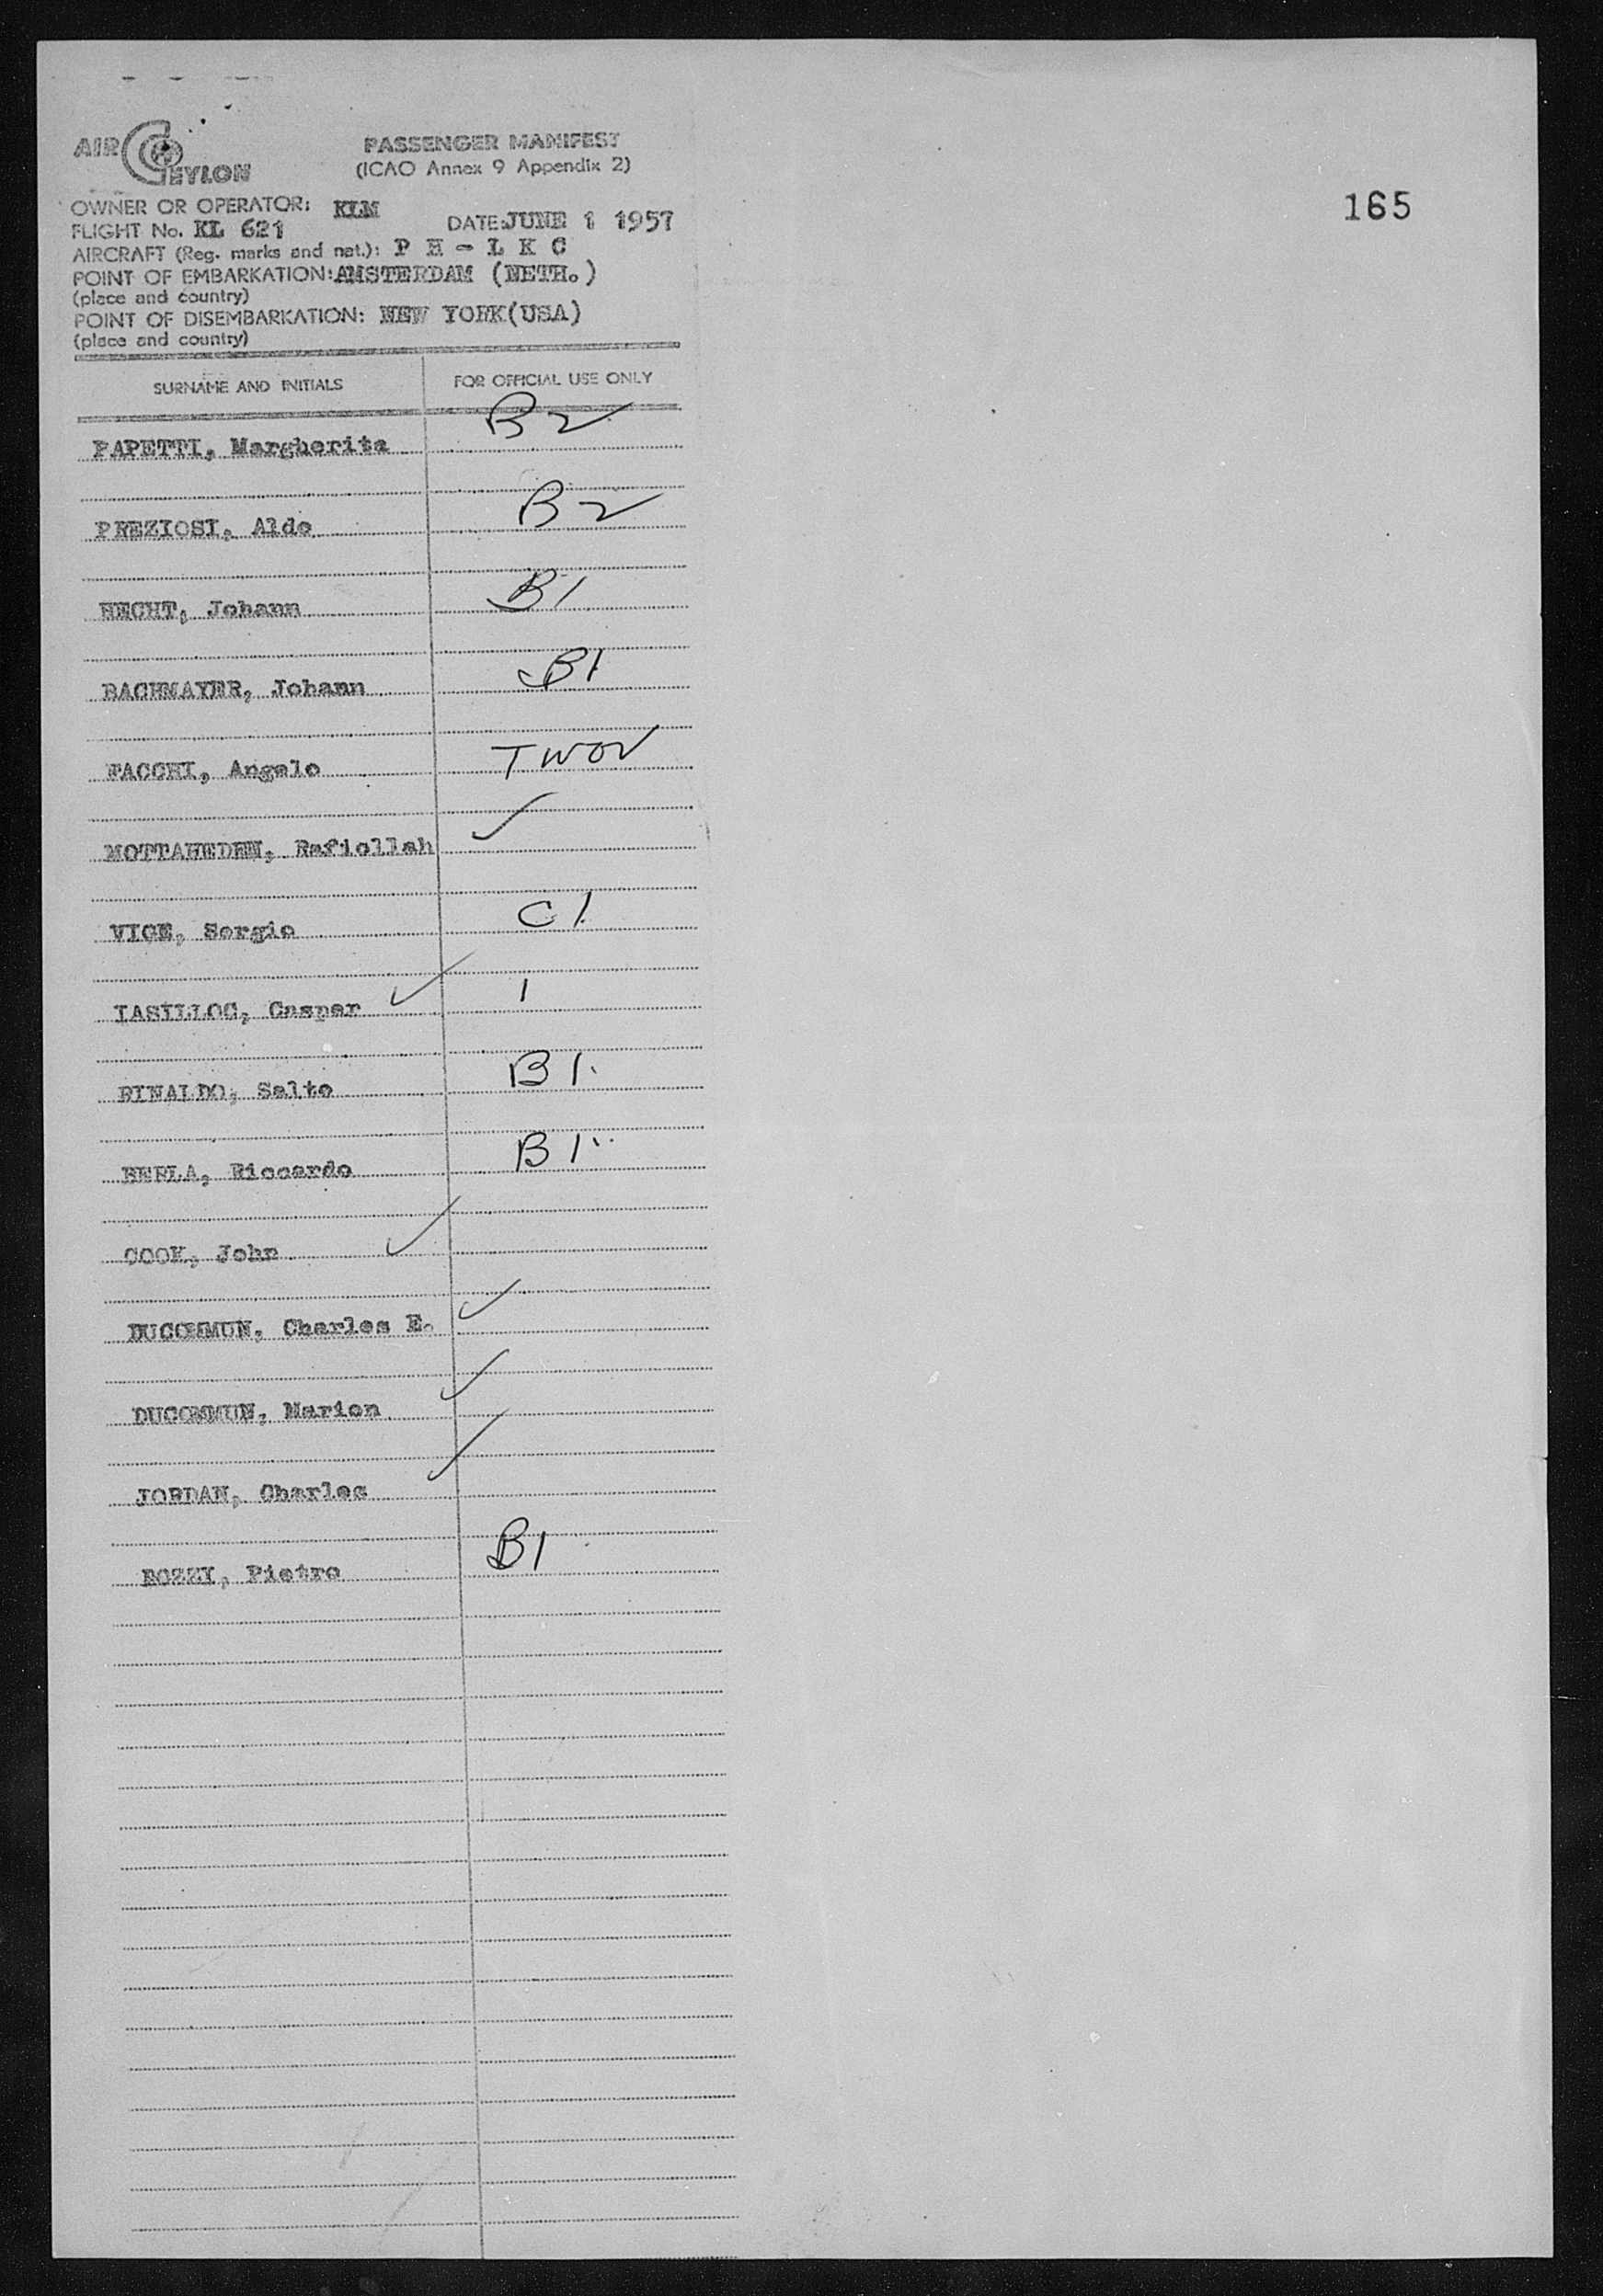 AIR CEYLON
PASSENGER MANIFEST
(ICAO Annex 9 Appendix 2)
165
OWNER OR OPERATOR: KLM
FLIGHT No. KL 621 DATE: JUNE 1 1957
AIRCRAFT (Reg. marks and nat.): P H - L K C
POINT OF EMBARKATION: AMSTERDAM (NETH.)
(place and country)
POINT OF DISEMBARKATION: NEW YORK(USA)
(place and country)
SURNAME AND INITIALS FOR OFFICIAL USE ONLY
PAPETTI, Margherita B2
PREZIOSI, Aldo B2
HECHT, Johann B1
BACHMAYER, Johann B1
FACCHI, Angelo TWOV
MOTTAHEDEH, Rafiollah ✓
VICE, Sergio C1
Caspar ✓ 1
RINALDO, Salto B1
Riccardo B1
COOK, John ✓
DUCOMMUN, Charles E. ✓
DUCOMMUN, Marion ✓
JORDAN, Charles ✓
Pietro B1